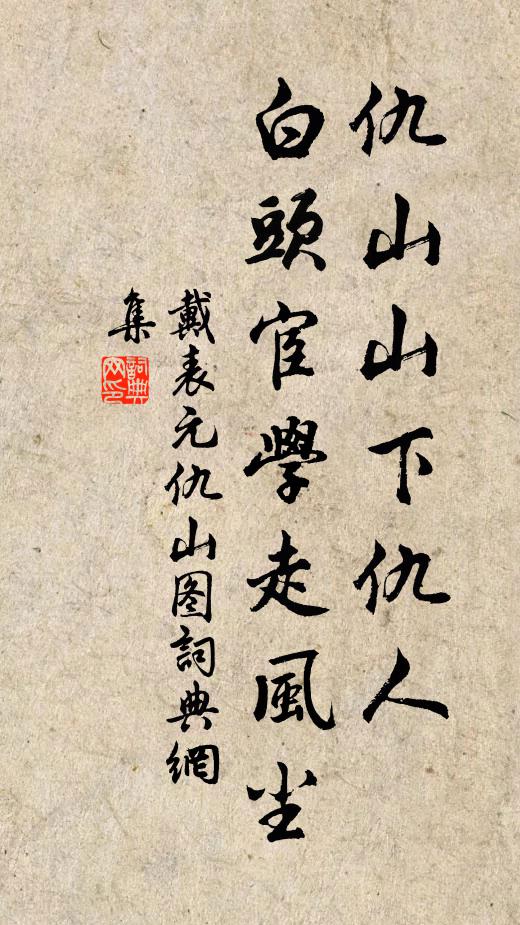 仇山山下仇人
白頭宦學走風尘
戴表元仇山图詞典網
集
詞典网印